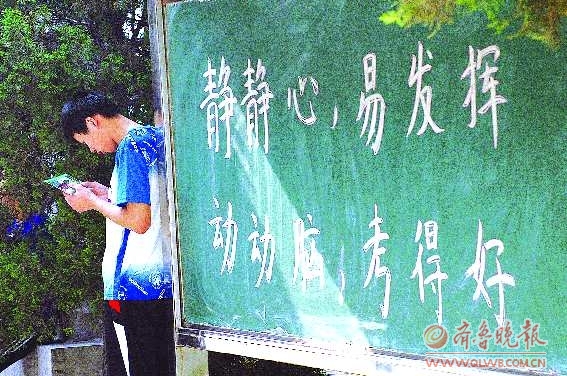 静静心，易发挥
动动脑，考得好
齐鲁晚报
WWW.QLWB.COM.CN